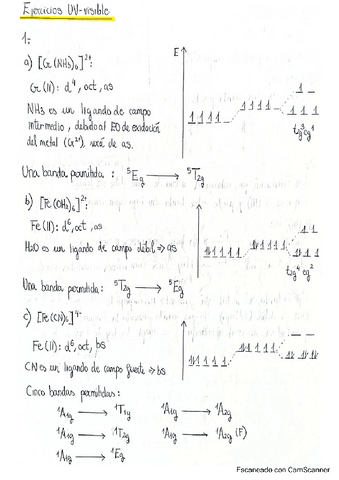 Ejercicios UV-visible
1:
a) [Cr(NH₃)₆]²⁺:
Cr(II): d⁴, oct, as
NH3 es un ligando de campo
intermedio, debido al EO de oxidación
del metal (Cr²⁺), será de as.
E
t₂g³ eg¹
Una banda permitida: ⁵Eg → ⁵T₂g
b) [Fe(OH₂)₆]²⁺:
Fe(II): d⁶, oct, as
H₂O es un ligando de campo débil → as
t₂g⁴ eg²
Una banda permitida: ⁵T₂g → ⁵Eg
c) [Fe(CN)₆]⁴⁻
Fe(II): d⁶, oct, bs
CN es un ligando de campo fuerte → bs
Cinco bandas permitidas:
¹A₁g → ¹T₁g ¹A₁g → ¹A₂g
¹A₁g → ¹T₂g ¹A₁g → ¹A₂g (F)
¹A₁g → ¹Eg
Escaneado con CamScanner